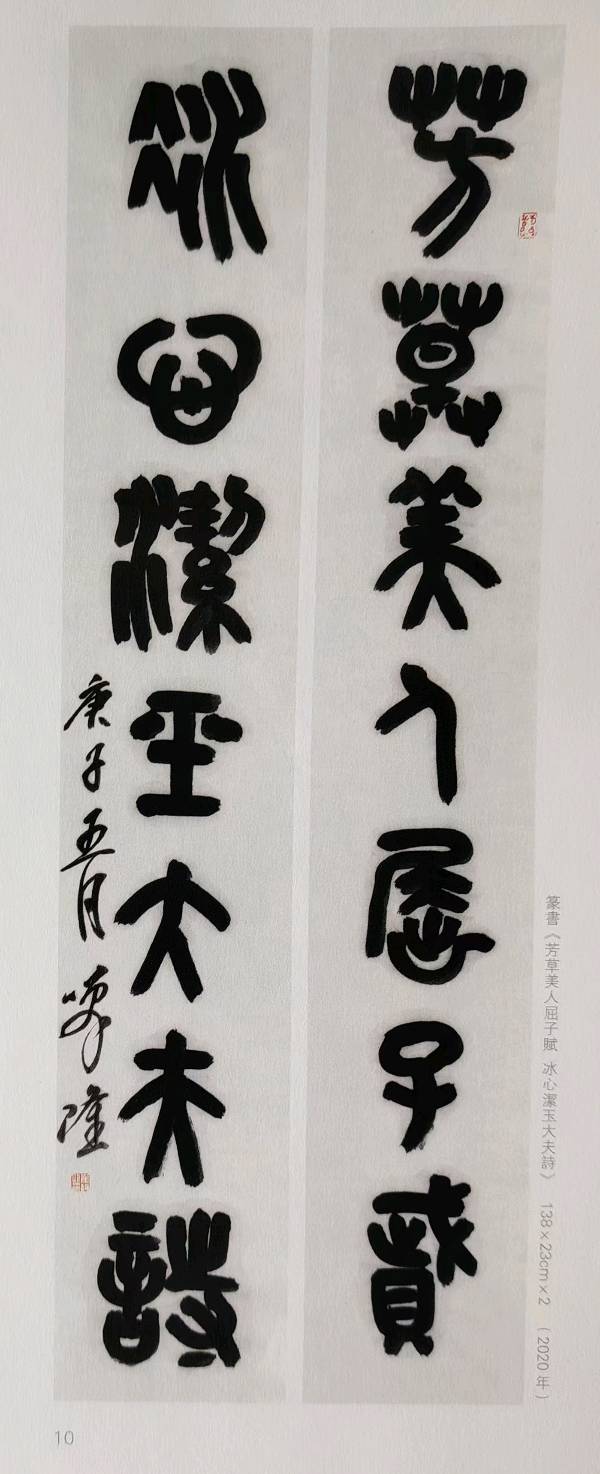 芳草美人屈子賦
冰心潔玉大夫詩
庚子五月
篆書《芳草美人屈子賦 冰心潔玉大夫詩》 138×23cm×2 (2020年)
10